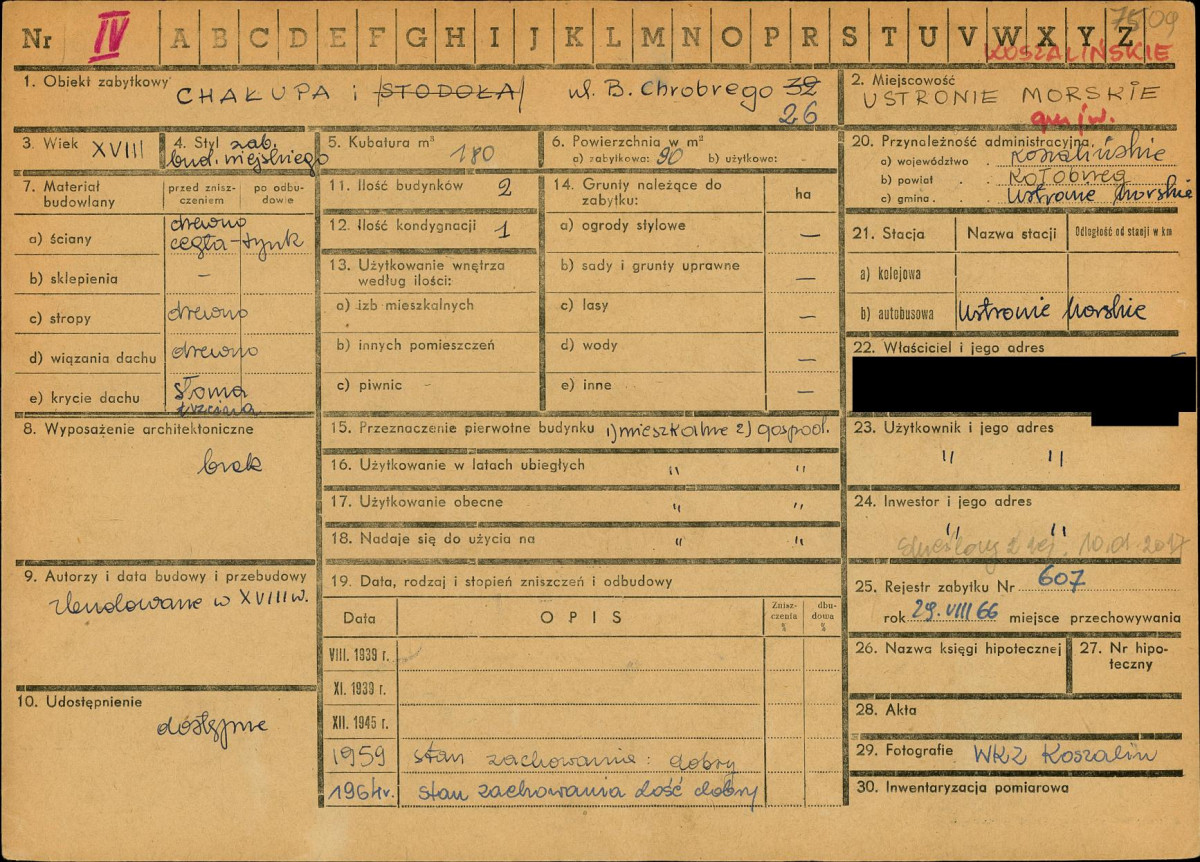 7509
Nr IV A B C D E F G H I J K L M N O P R S T U V W X Y Z
KOSZALIŃSKIE
1. Obiekt zabytkowy CHAŁUPA i STODOŁA ul. B. Chrobrego 32
26
2. Miejscowość
USTRONIE MORSKIE
gm. j.w.
3. Wiek XVIII
4. Styl zab.
bud. wiejskiego
5. Kubatura m³ 180
6. Powierzchnia w m²
a) zabytkowa: 90 b) użytkowa:
7. Materiał budowlany
przed zniszczeniem
po odbudowie
a) ściany drewno
cegła-tynk
b) sklepienia –
c) stropy drewno
d) wiązania dachu drewno
e) krycie dachu słoma
trzcina
8. Wyposażenie architektoniczne
brak
9. Autorzy i data budowy i przebudowy
zbudowane w XVIII w.
10. Udostępnienie
dostępne
11. Ilość budynków 2
12. Ilość kondygnacji 1
13. Użytkowanie wnętrza
według ilości:
a) izb mieszkalnych
b) innych pomieszczeń
c) piwnic –
14. Grunty należące do
zabytku: ha
a) ogrody stylowe –
b) sady i grunty uprawne –
c) lasy –
d) wody –
e) inne –
15. Przeznaczenie pierwotne budynku 1) mieszkalne 2) gospod.
16. Użytkowanie w latach ubiegłych " "
17. Użytkowanie obecne " "
18. Nadaje się do użycia na " "
19. Data, rodzaj i stopień zniszczeń i odbudowy
Data OPIS Zniszczenia % dbudowa %
VIII. 1939 r.
XI. 1939 r.
XII. 1945 r.
1959 stan zachowania: dobry
1964 r. stan zachowania dość dobry
20. Przynależność administracyjna
a) województwo . koszalińskie
b) powiat . . Kołobrzeg
c) gmina . . Ustronie Morskie
21. Stacja Nazwa stacji Odległość od stacji w km
a) kolejowa
b) autobusowa Ustronie Morskie
22. Właściciel i jego adres
23. Użytkownik i jego adres
" "
24. Inwestor i jego adres
" "
skreślony z rej. 10.01.2017
25. Rejestr zabytku Nr 607
rok 29.VIII 66 miejsce przechowywania
26. Nazwa księgi hipotecznej
27. Nr hipoteczny
28. Akta
29. Fotografie WKZ Koszalin
30. Inwentaryzacja pomiarowa